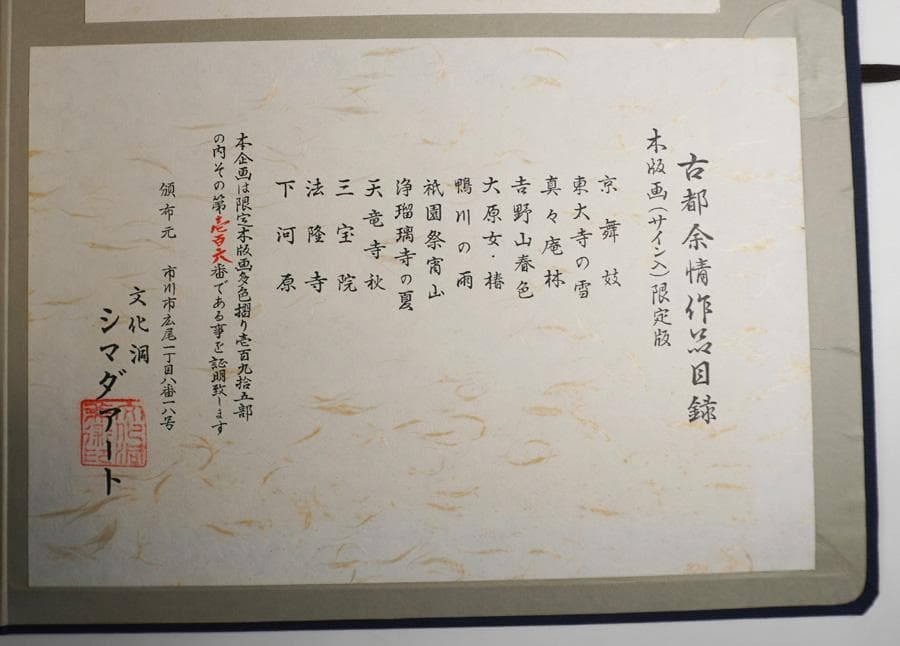 古都余情作品目録
木版画(サイン入)限定版
京舞妓
東大寺の雪
真々庵林
吉野山春色
大原女・椿
鴨川の雨
祇園祭宵山
浄瑠璃寺の夏
天竜寺秋
三宝院
法隆寺
下河原
本企画は限定木版画多色摺り壱百九拾五部
の内その第壱百六番である事を証明致します
頒布元 市川市広尾一丁目八番一八号
文化洞
シマダアート